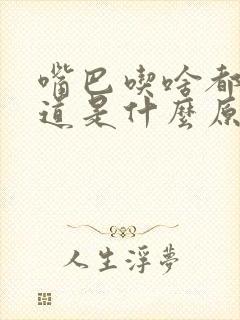 嘴巴喫啥都
道是什麼原
人生浮夢